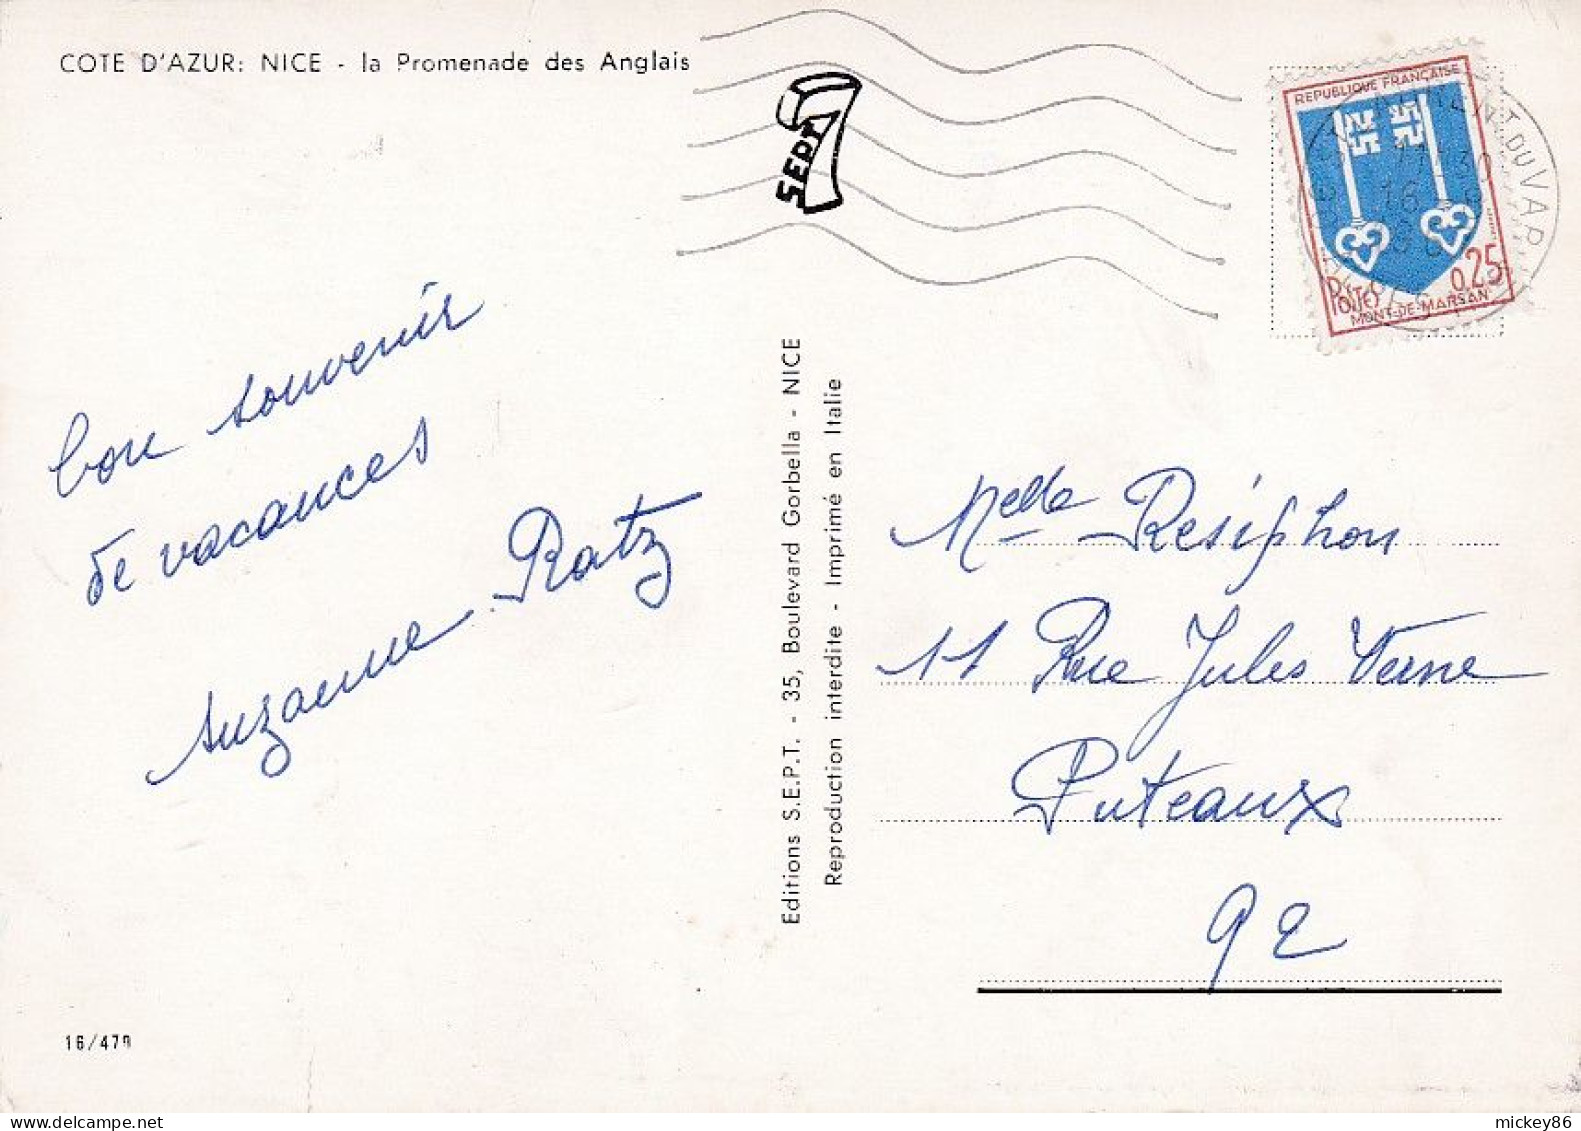 COTE D'AZUR: NICE - la Promenade des Anglais
SEPT
REPUBLIQUE FRANÇAISE
0,25
POSTES
MONT-DE-MARSAN
bon souvenir
de vacances
Suzanne Ratz
Editions S.E.P.T. - 35, Boulevard Gorbella - NICE
Reproduction interdite - Imprimé en Italie
Melle Resiphon
11 Rue Jules Verne
Puteaux
92
16/479
mickey86